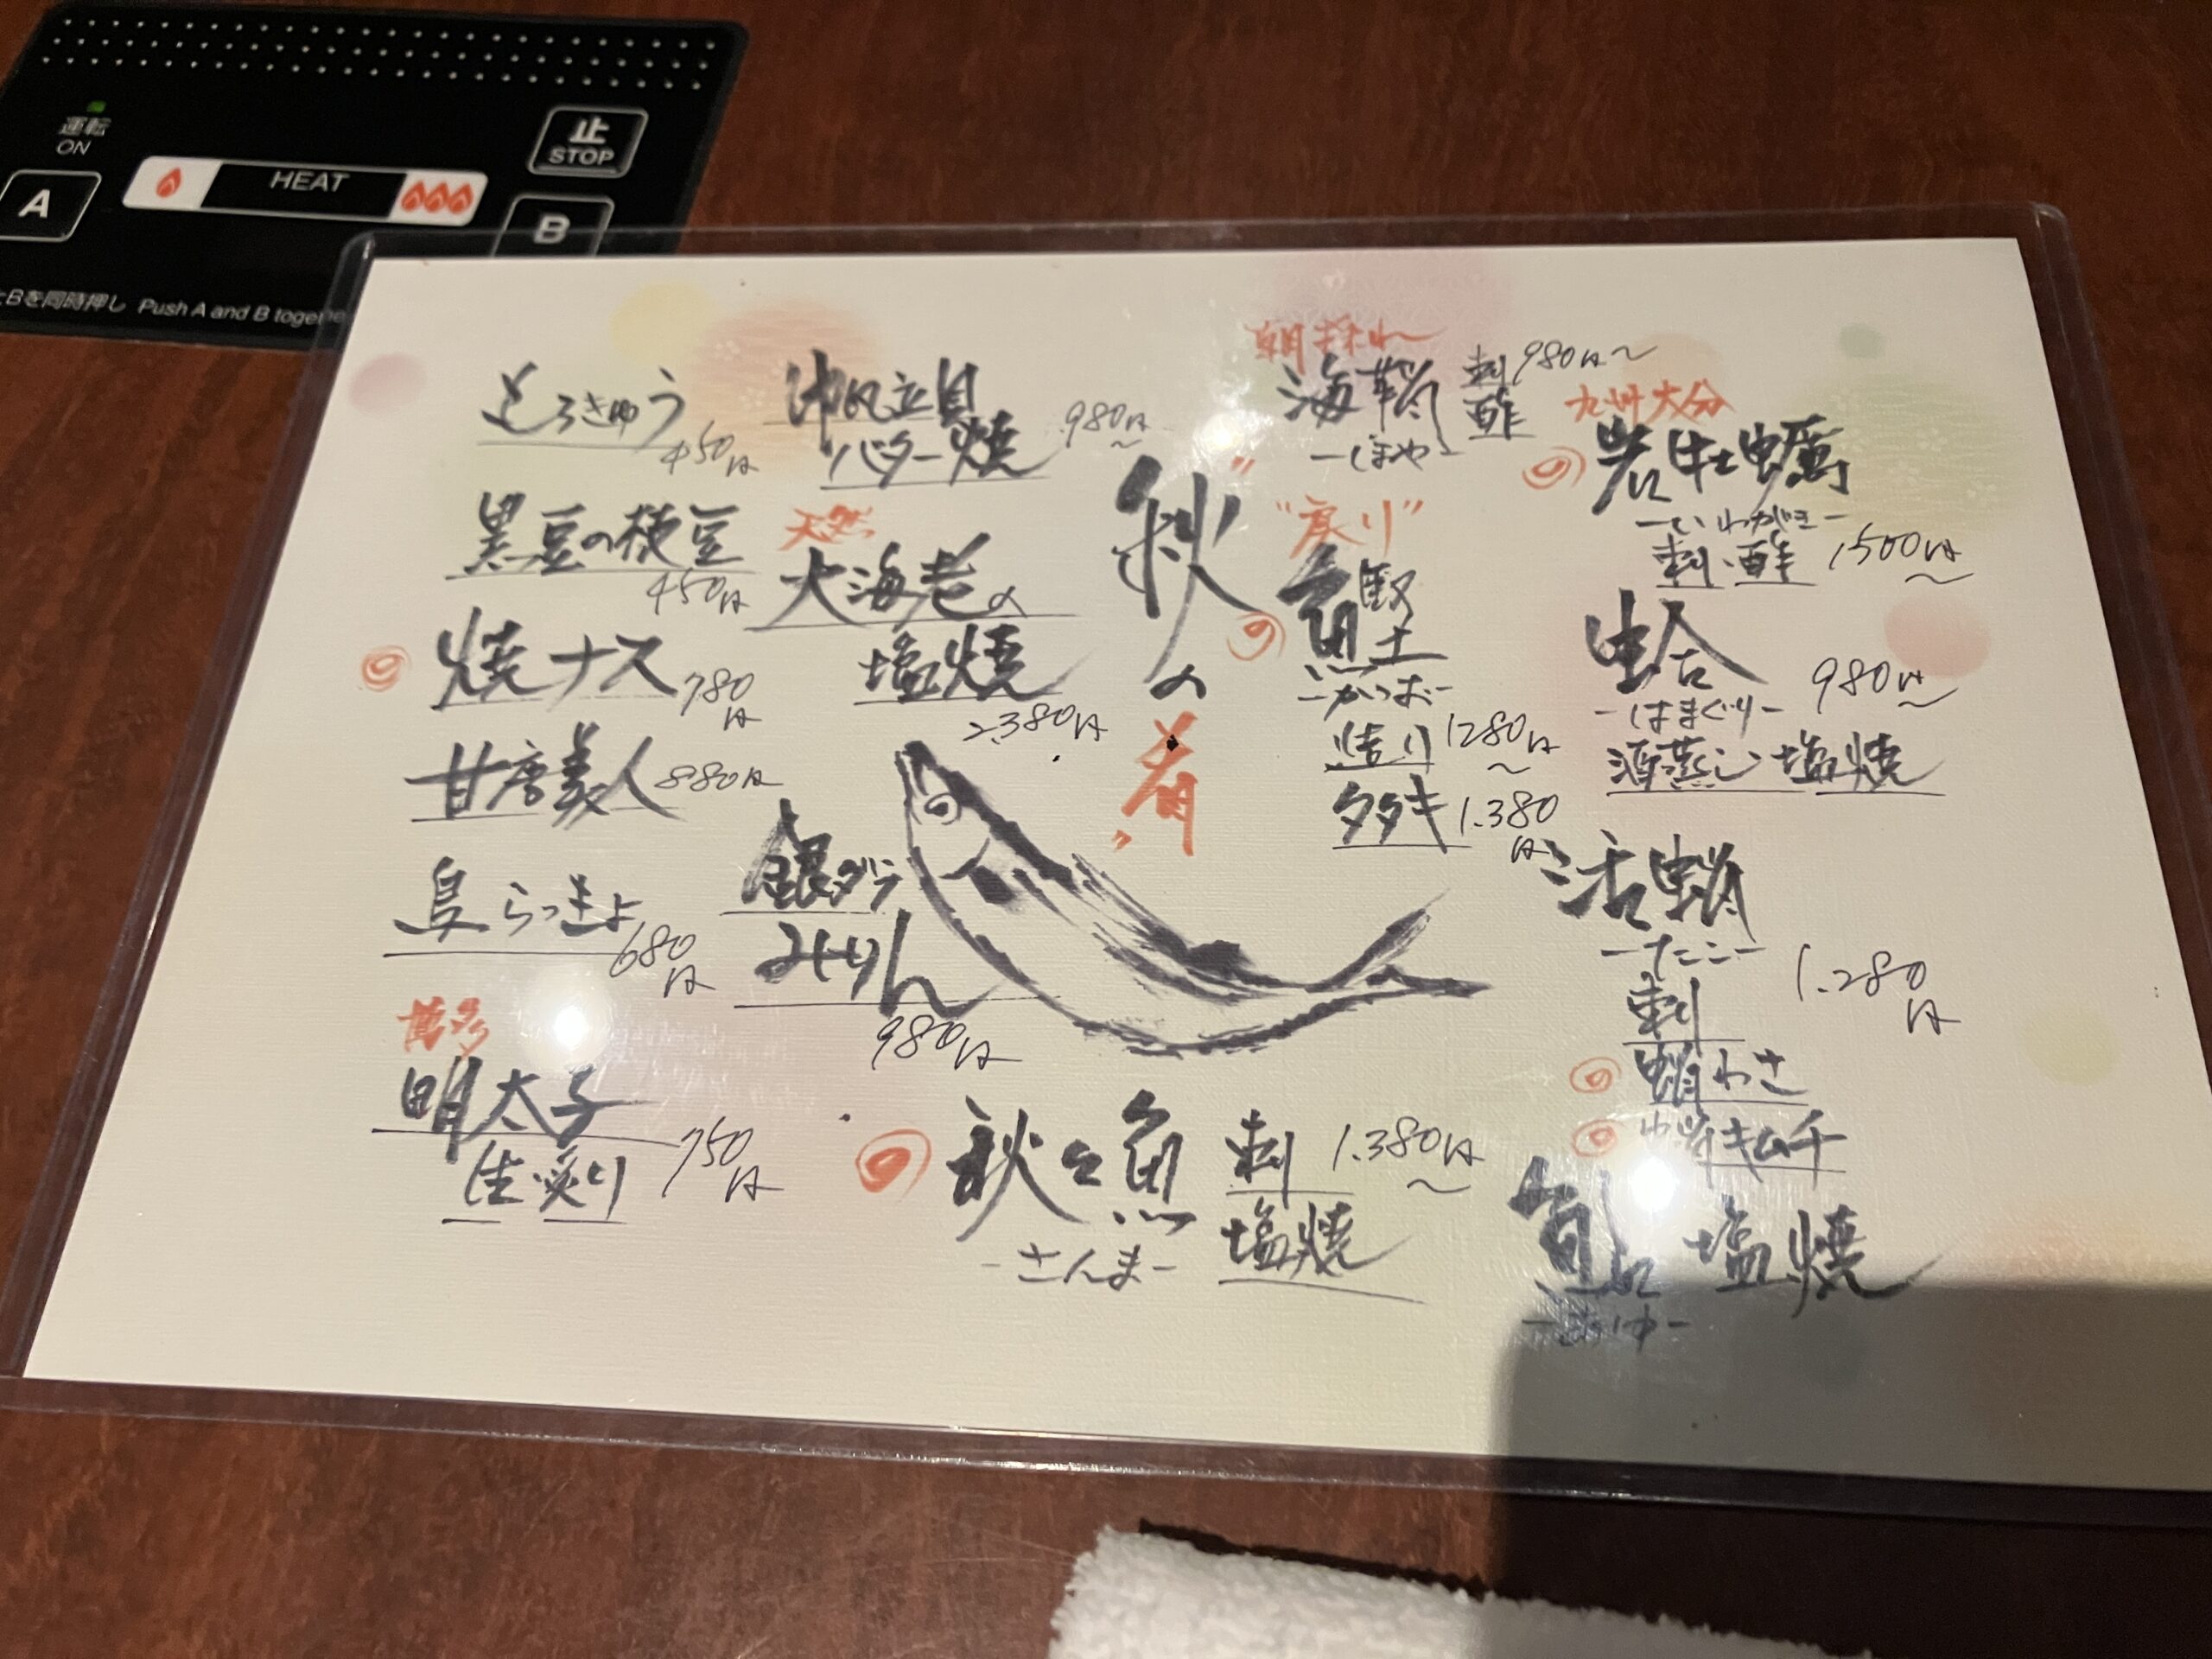 運転
ON
止
STOP
A
HEAT
B
Bを同時押し Push A and B toge
朝採れ
海鞘 刺 980円〜
酢
-ほや-
九州大分
岩牡蠣
-いわがき-
刺・酢 1500円〜
"戻り"
鰹
-かつお-
造り 1280円〜
タタキ 1.380円
蛤 980円〜
-はまぐり-
酒蒸し 塩焼
活蛸
-たこ-
刺 1.280円
蛸わさ
蛸キムチ
塩焼
-あゆ-
"秋の肴"
沖帆立貝
バター焼 980円〜
天然
大海老の
塩焼
2.380円
銀ダラ
みりん
980円
秋刀魚 刺 1.380円〜
-さんま- 塩焼
とろきゅう
450円
黒豆の枝豆
450円
焼ナス 780円
甘唐美人 880円
島らっきょ
680円
博多
明太子
生・炙り 750円